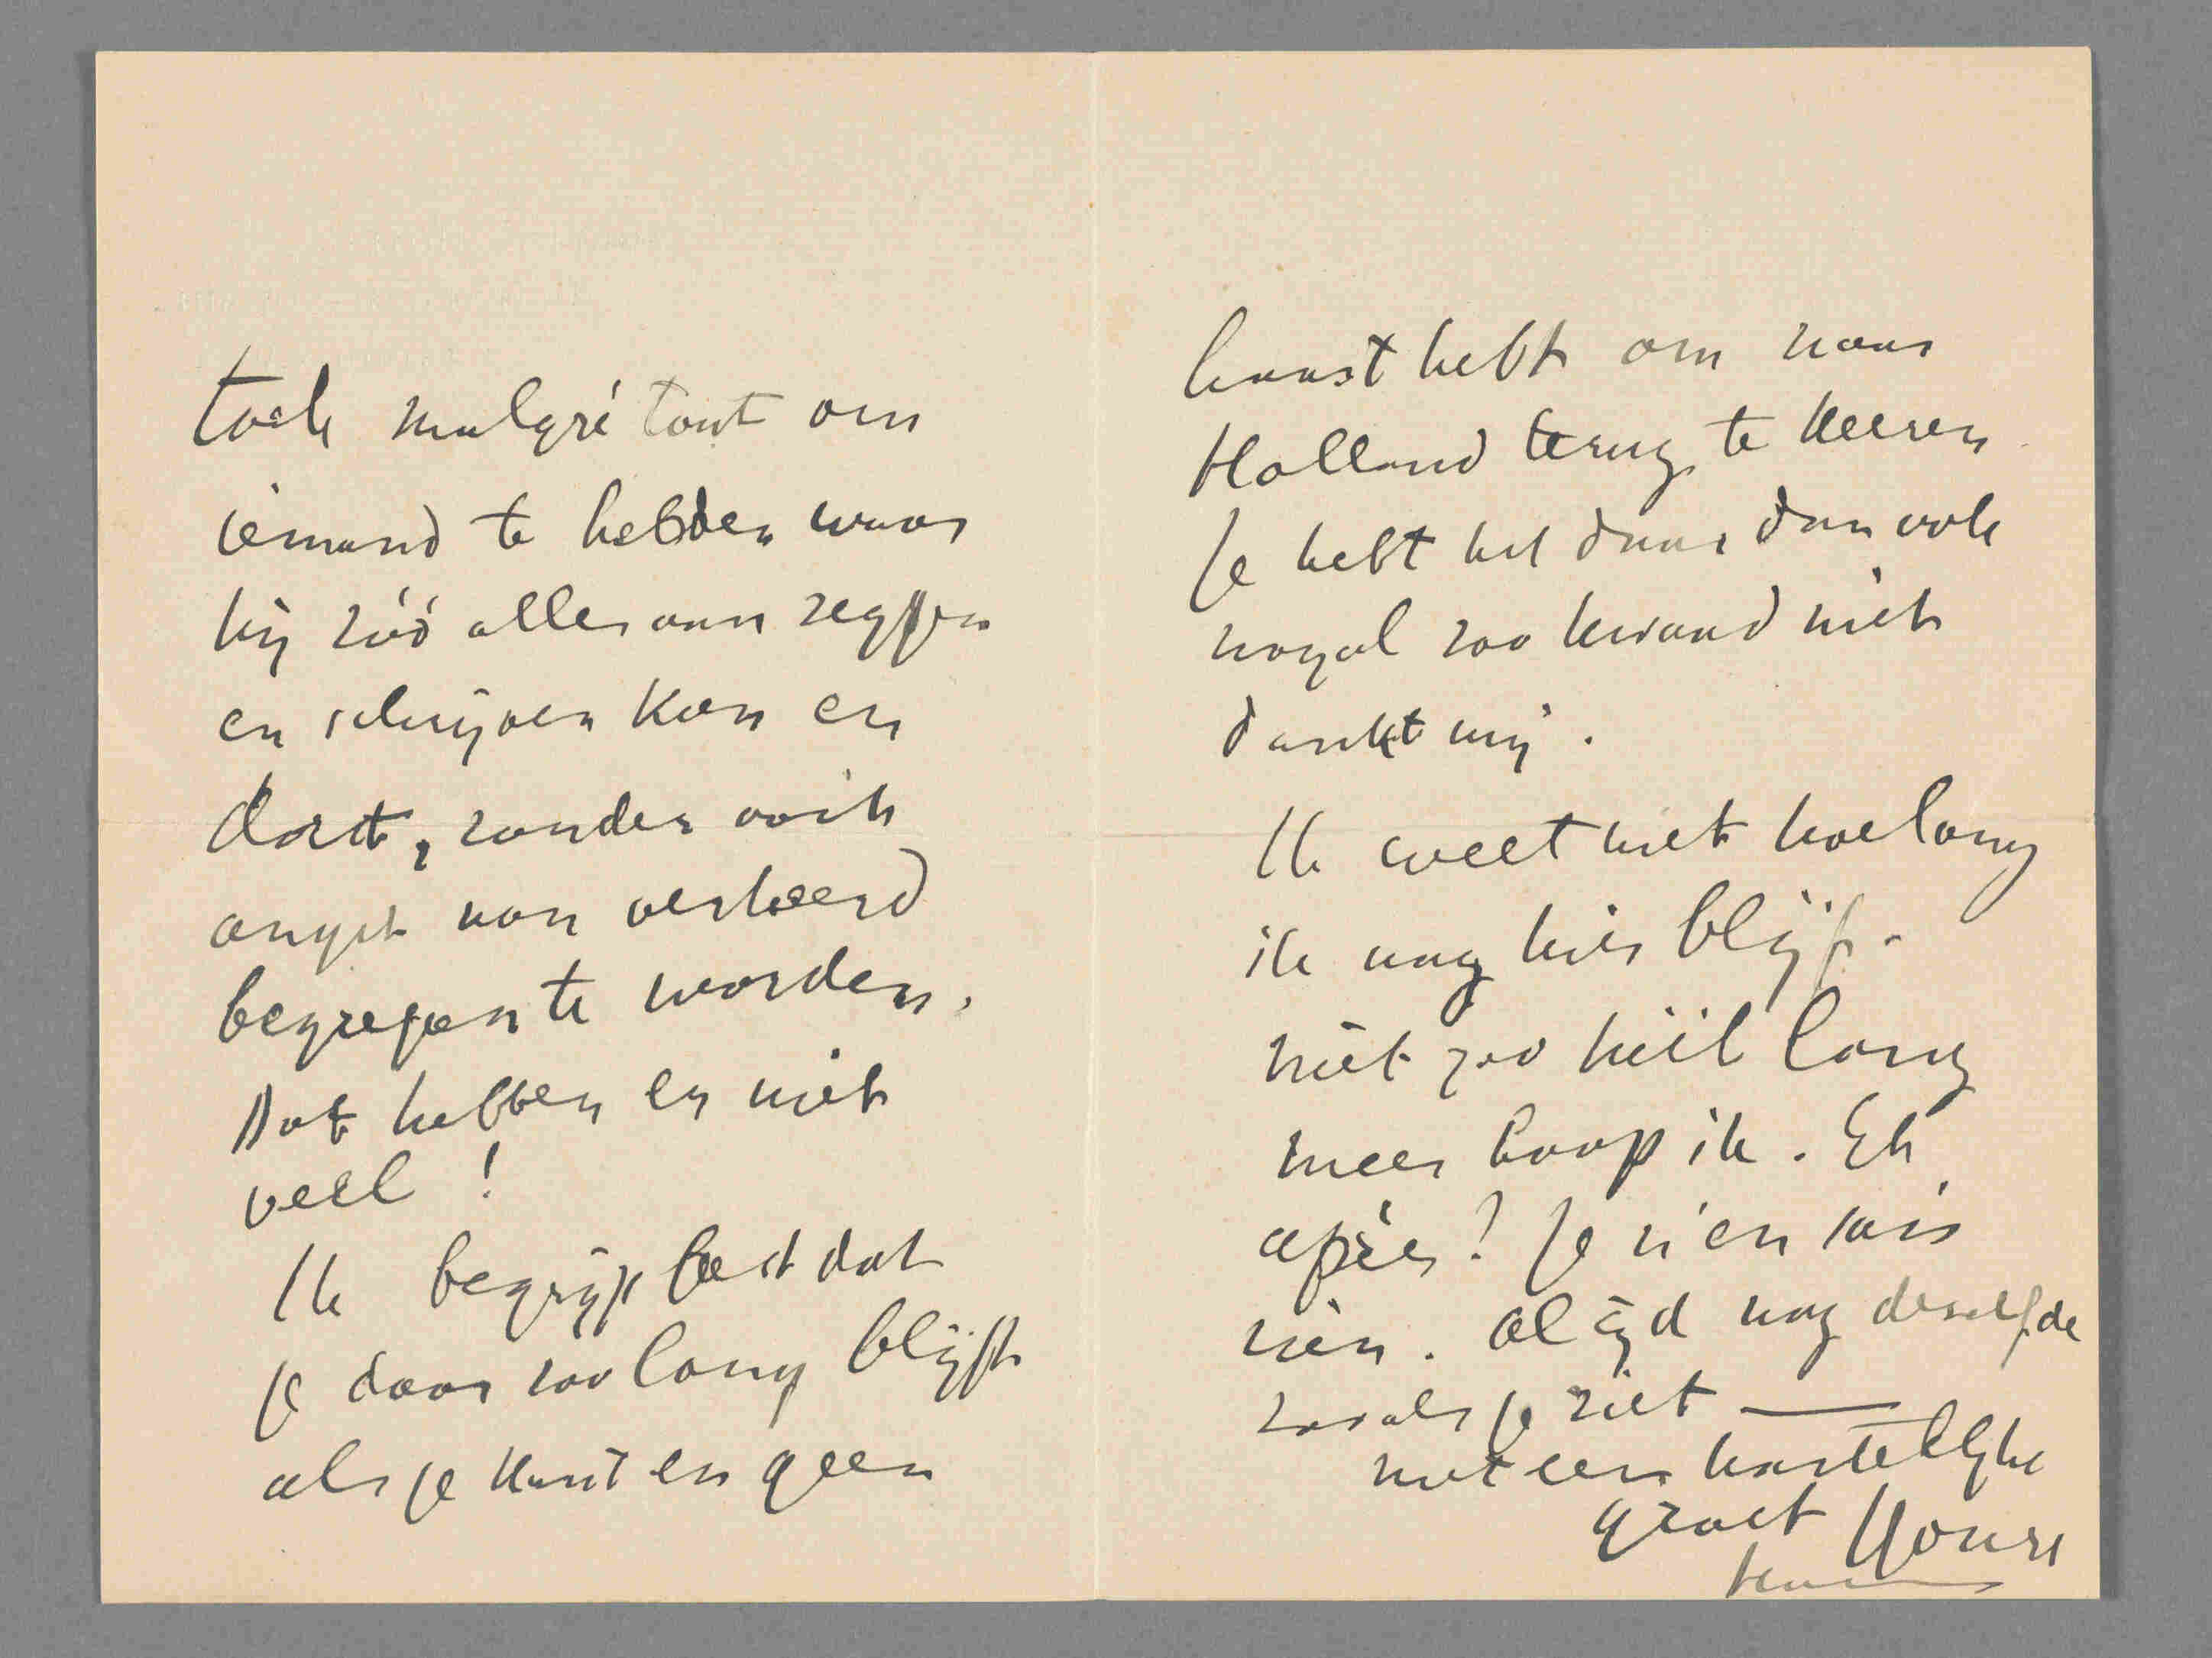 toch malgré tout om
iemand te hebben waar
hij zóó alles aan zeggen
en schrijven kan en
durft, zonder ooit
angst van verkeerd
begrepen te worden.
Dat hebben er niet
veel!
Ik begrijp best dat
je daar zoo lang blijft
als je kunt en geen
haast hebt om naar
Holland terug te keeren
Je hebt het daar dan ook
nogal zoo kwaad niet
dunkt mij.
Ik weet niet hoelang
ik nog hier blijf.
niet zoo héél lang
meer hoop ik. Et
après? Je n'en sais
rien. Altijd nog dezelfde
zooals je ziet —
met een hartelijke
groet Yours